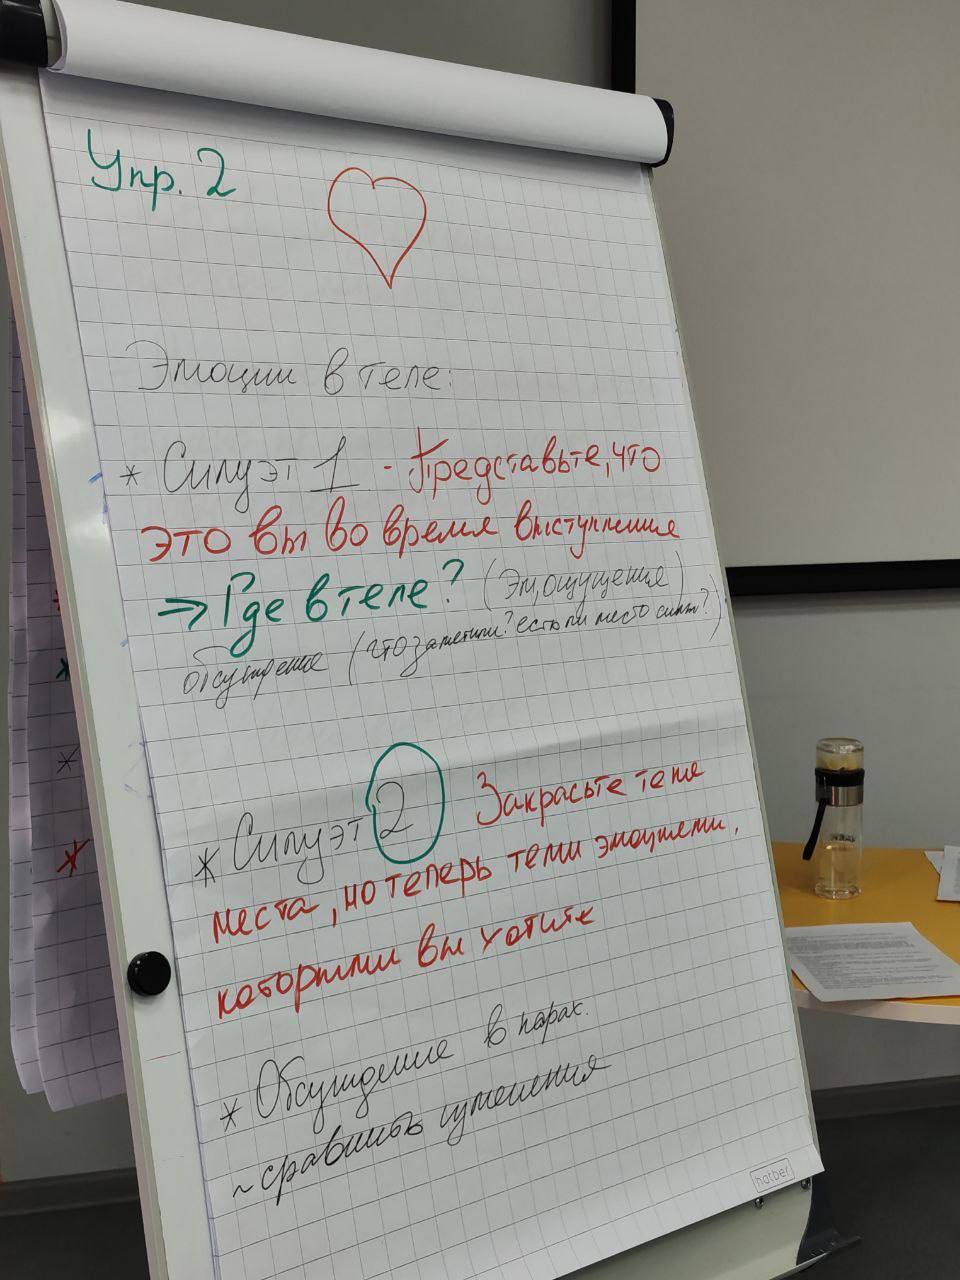 Упр. 2
Эмоции в теле:
* Силуэт 1 - Представьте, что
это вы во время выступления
⇒ Где в теле? (Эм, ощущения)
обсуждение (что заметили? есть ли место силы?)
* Силуэт 2 Закрасьте те же
места, но теперь теми эмоциями,
которыми вы хотите
* Обсуждение в парах.
~ сравнить изменения
hatber